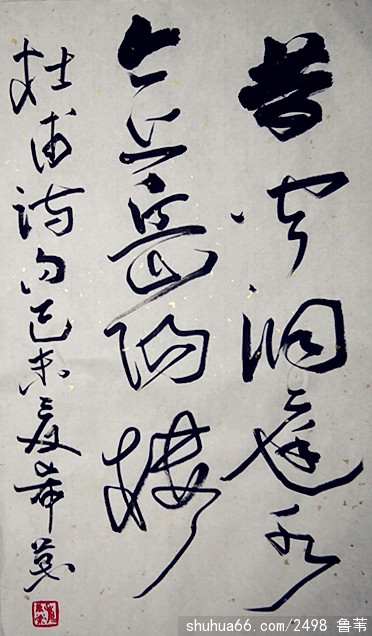 昔闻洞庭水
今上岳阳楼
杜甫诗句己未夏希
shuhua66.com/2498 鲁苇